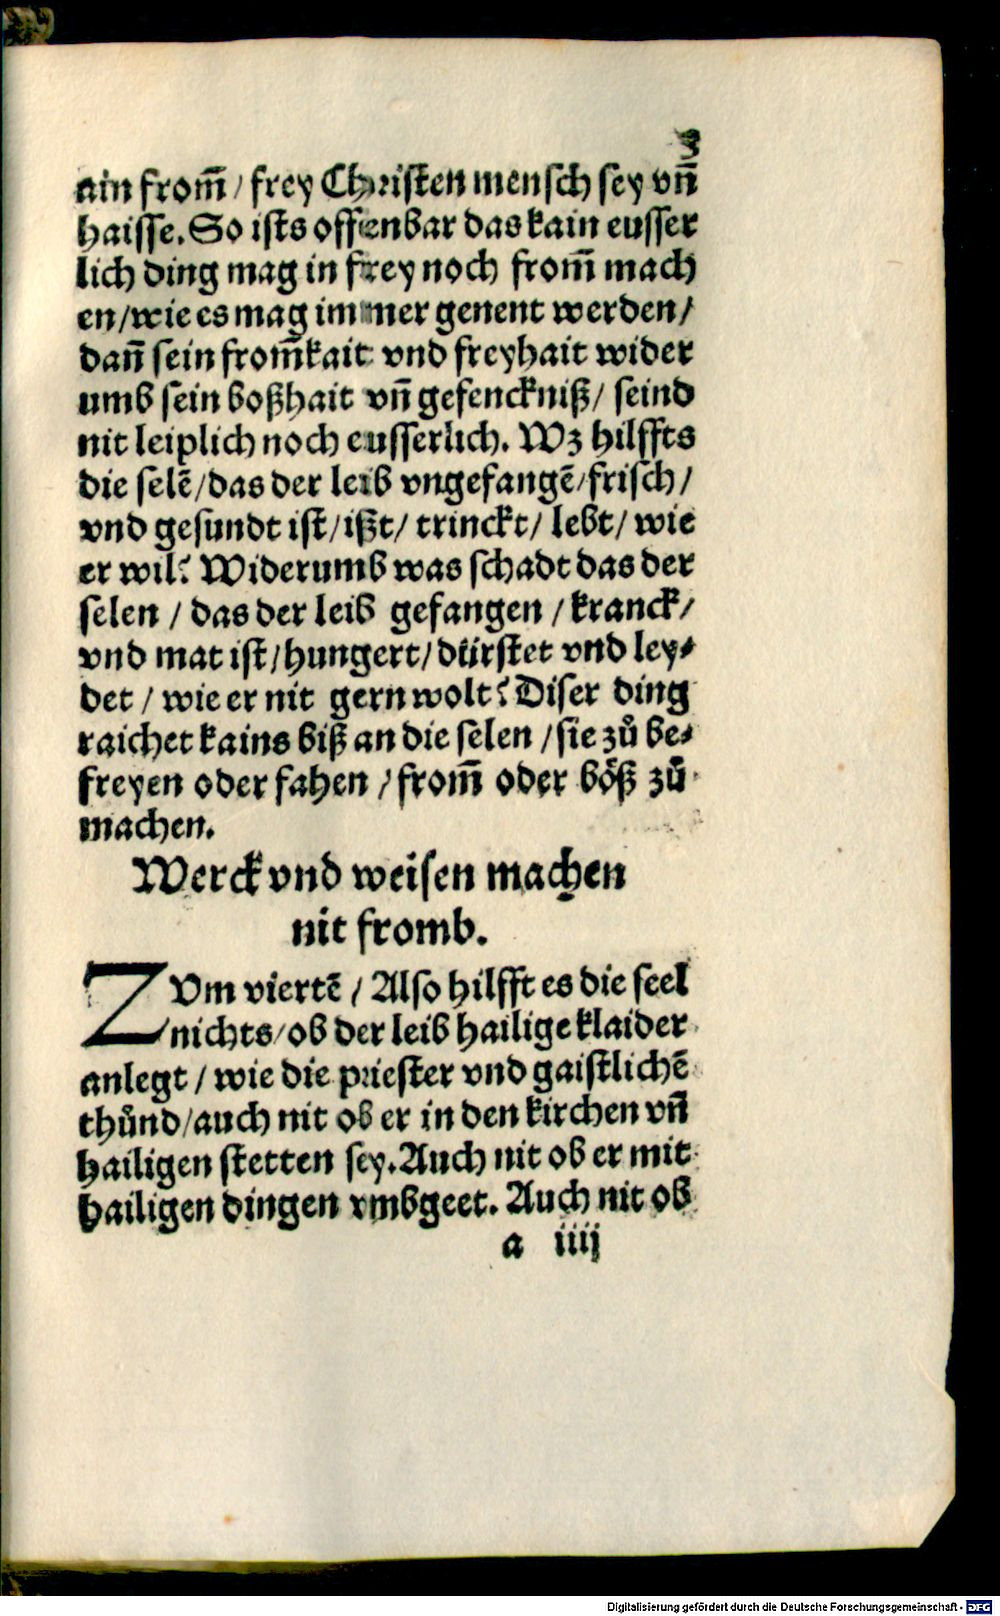 3
ain from̄ / frey Christen mensch sey vn̄
haisse. So ists offenbar das kain eusser
lich ding mag in frey noch from̄ mach
en / wie es mag immer genent werden /
dan̄ sein from̄kait vnd freyhait wider
umb sein boßhait vn̄ gefenckniß / seind
nit leiplich noch eusserlich. Wz hilffts
die selē / das der leib vngefangē / frisch /
vnd gesundt ist / ißt / trinckt / lebt / wie
er wil? Widerumb was schadt das der
selen / das der leib gefangen / kranck /
vnd mat ist / hungert / dürstet vnd ley⸗
det / wie er nit gern wolt? Diser ding
raichet kains biß an die selen / sie zů be⸗
freyen oder fahen / from̄ oder böß zů
machen.
Werck vnd weisen machen
nit fromb.
ZVm viertē / Also hilfft es die seel
nichts / ob der leib hailige klaider
anlegt / wie die priester vnd gaistlichē
thůnd / auch nit ob er in den kirchen vn̄
hailigen stetten sey. Auch nit ob er mit
hailigen dingen vmbgeet. Auch nit ob
a iiij
Digitalisierung gefördert durch die Deutsche Forschungsgemeinschaft - DFG